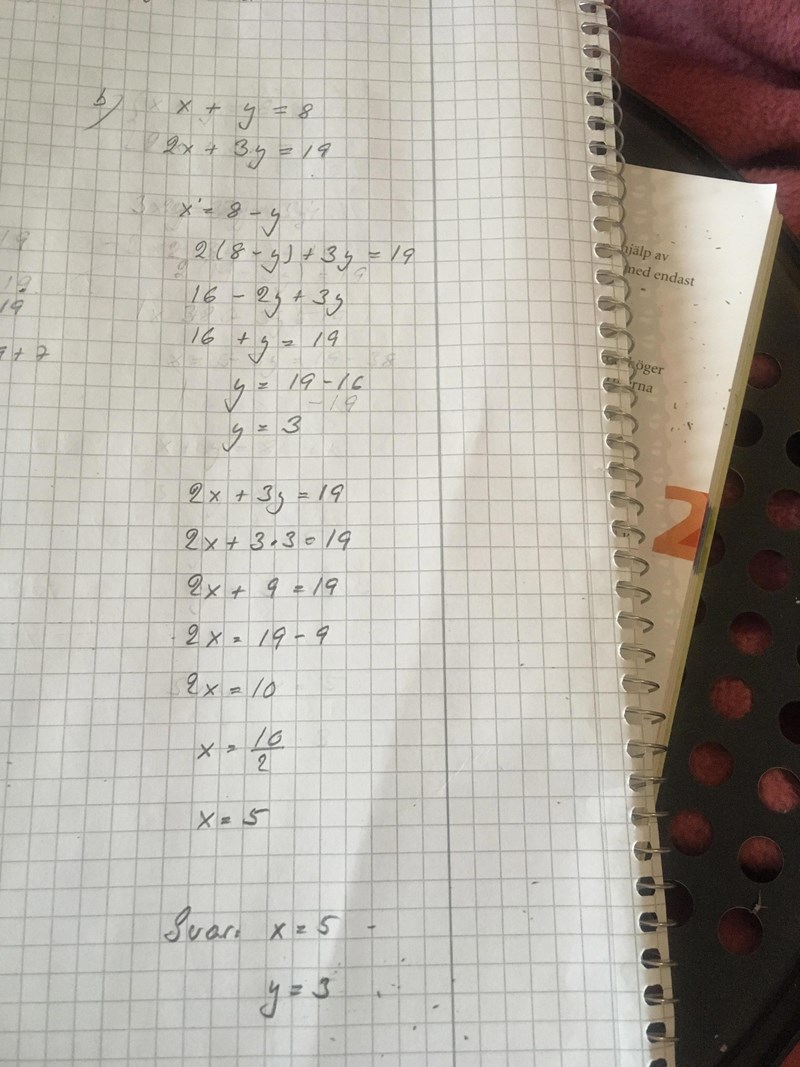 b)
x + y = 8
2x + 3y = 19
x = 8 - y
2(8 - y) + 3y = 19
16 - 2y + 3y
16 + y = 19
y = 19 - 16
y = 3
2x + 3y = 19
2x + 3·3 = 19
2x + 9 = 19
2x = 19 - 9
2x = 10
x = 10/2
x = 5
Svar: x = 5
y = 3
19
19
19
+ 7
hjälp av
med endast
höger
2